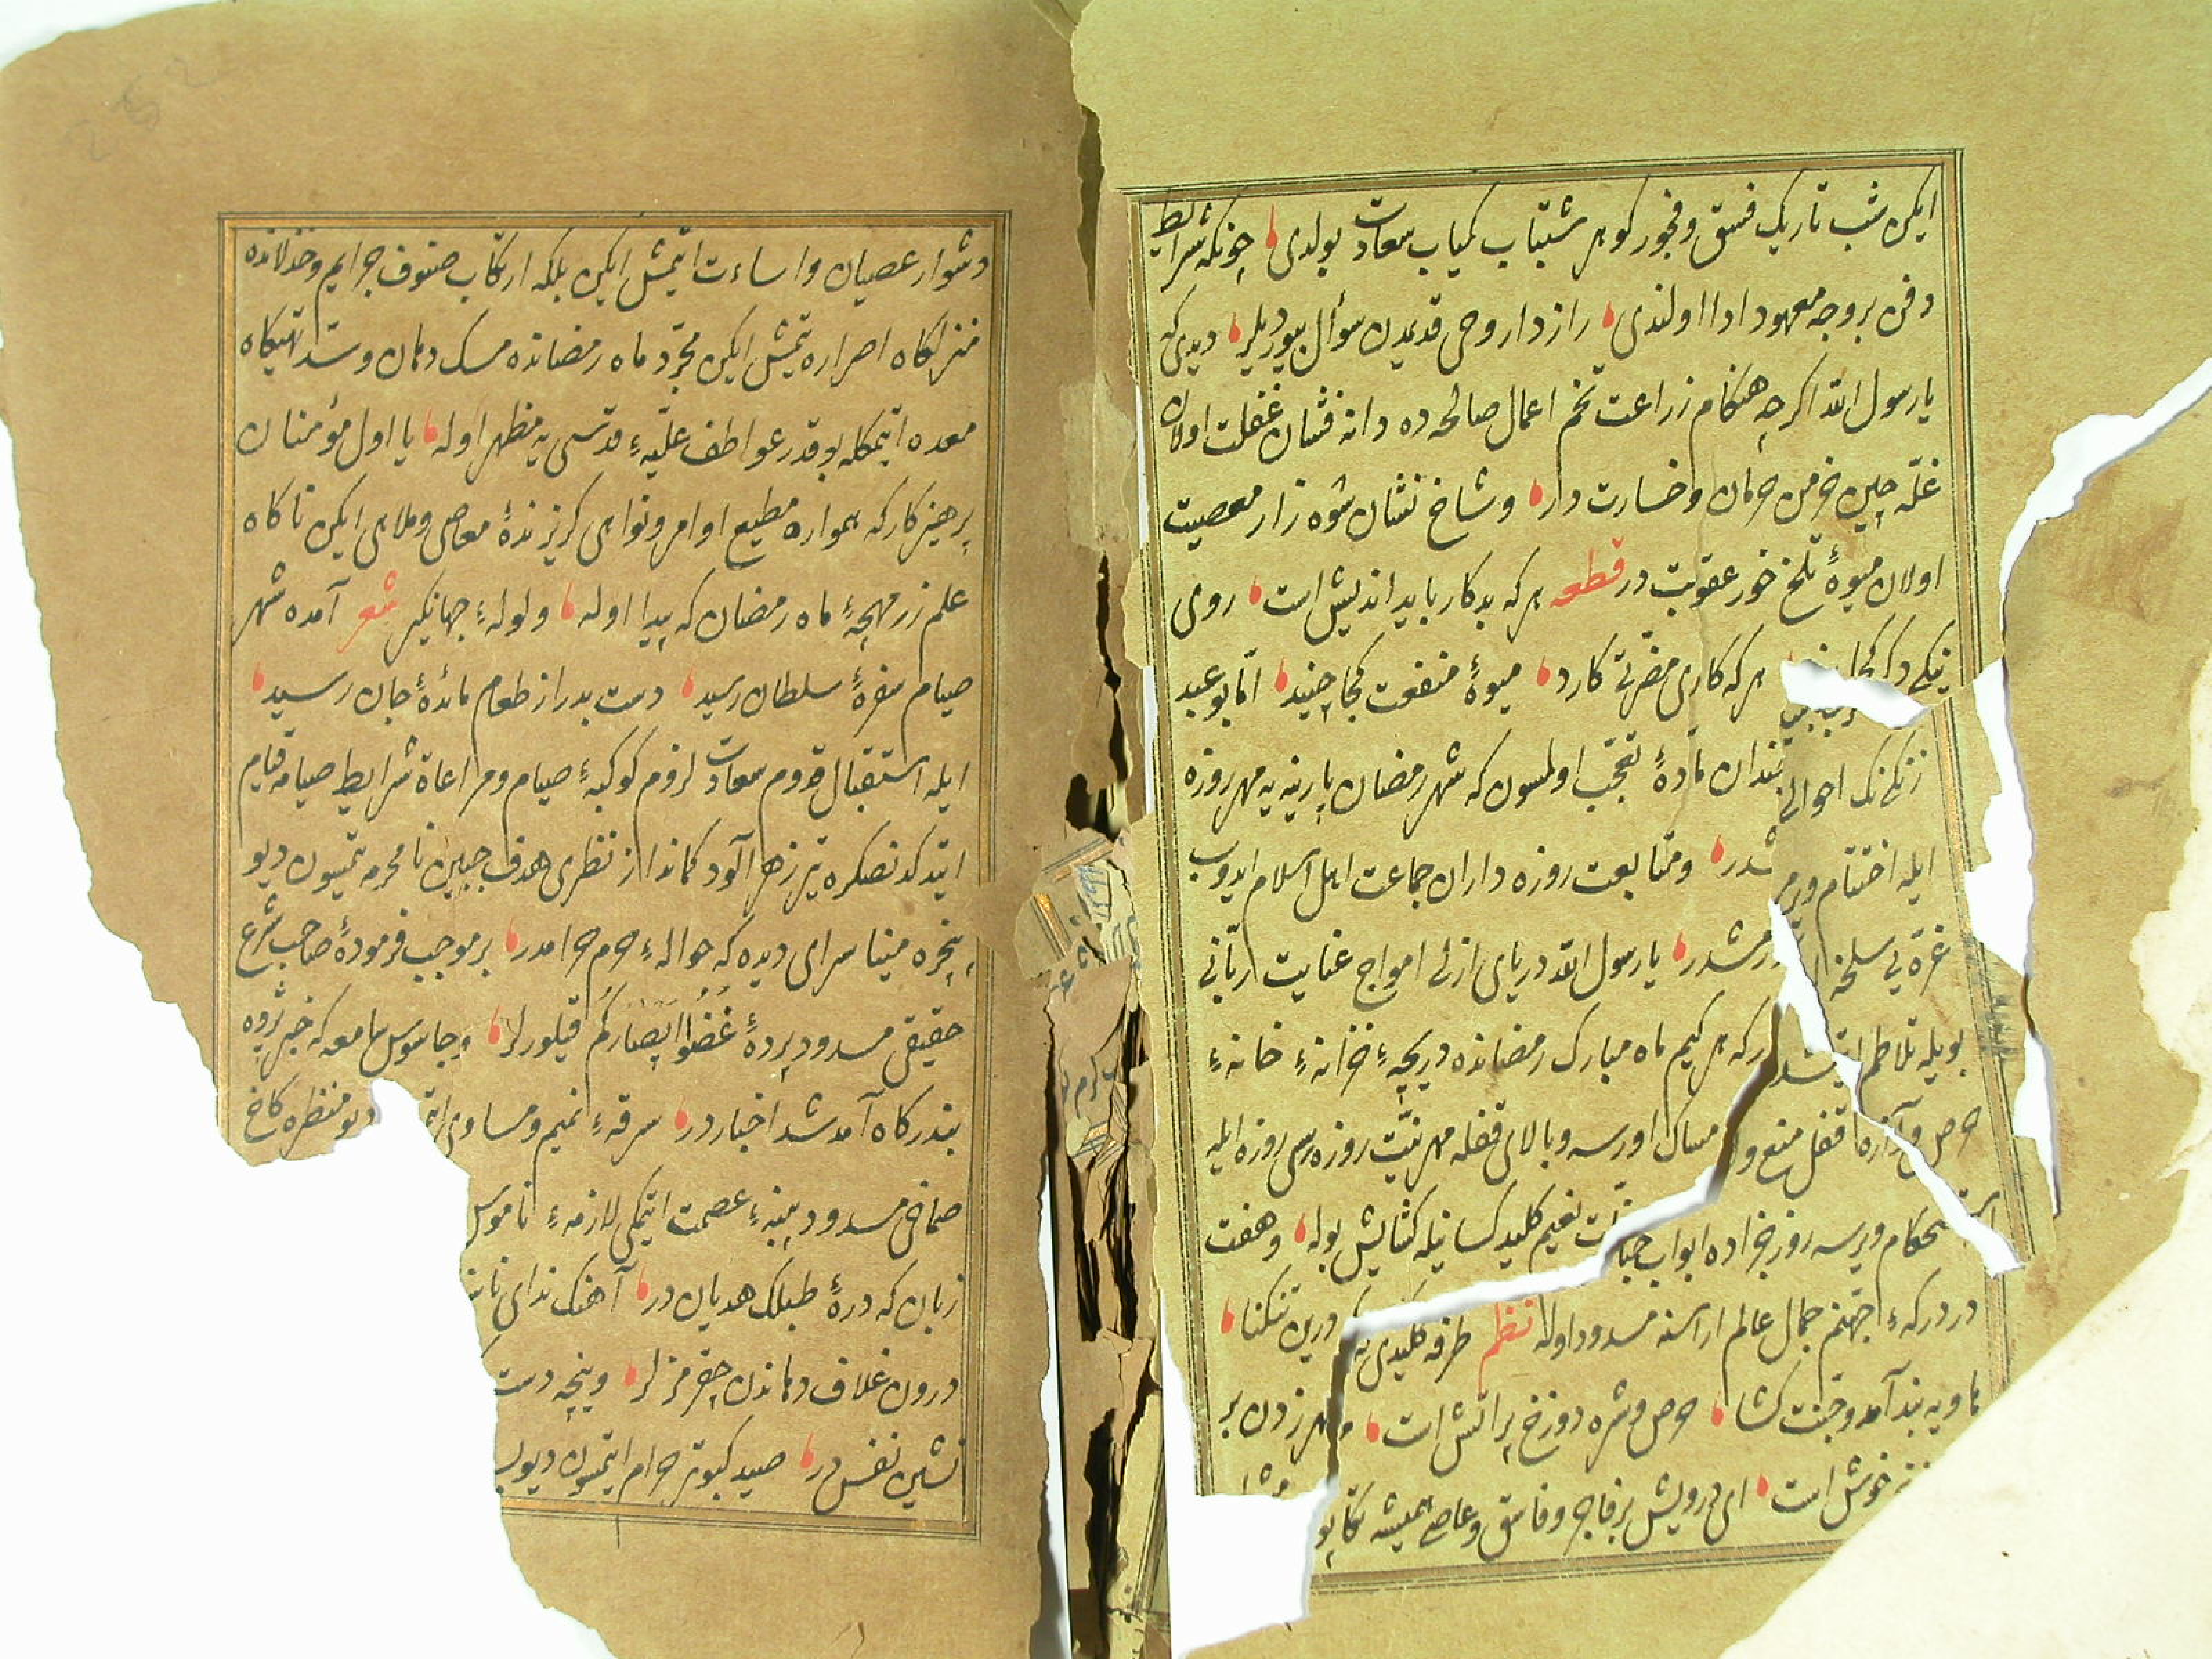 ایکن شب تاریك فسق و فجور کوهر شبتاب کمیاب سعادت بولدی چونکه شرایط
دفن بر وجه معهود ادا اولندی رازدار وحی قدیمدن سؤال بیوردیلر دیدی که
یا رسول الله اکرچه هنکام زراعت تخم اعمال صالحه ده دانه فشان غفلت اولان
غله چین خرمن حرمان و خسارت در و شاخ نشان شوه زار معصیت
اولان میوهٔ تلخ خور عقوبت در قطعه هر که بدکار یا بداندیش است روی
نیکی هر که کاری مضرتی کارد میوهٔ منفعت کجا چیند اما بو عبد
زنکینك احوالی مادهٔ تعجب اولمسون که شهر رمضان پارینه یه مهر روزه
ایله اختتام و متابعت روزه داران جماعت اهل اسلام ایدوب
غره یی سلخه یا رسول الله دریای ازلی امواج عنایت ربانی
بویله تلاطم که هر کیم ماه مبارك رمضانده دریچهٔ خزانهٔ خانهٔ
حرص و آزه قفل منع و امساك اورسه و بالای قفله مهر نیت روزه سی روزه ایله
استحکام ویرسه روز جزاده ابواب جنات نعیم کلید کسانیله کشایش بوله و هفت
در درکهٔ جهنم جمال عالم آراسنه مسدود اوله نظم طرفه کلیدی درین تنکنا
ماویه بند آمد و جنت کشا حرص و شره دوزخ پر آتش است مهر زدن بر
خوش است ای درویش بر فاجر و فاسق و عاصی همیشه تکاپو
دشوار عصیان و اساءت ایتمش ایکن بلکه ارتکاب صنوف جرایم و خذلانده
منزلکاه اصراره یتمش ایکن مجرد ماه رمضانده مسك دهان و سد تهیکاه
معده ایتمکله بو قدر عواطف علیهٔ قدسی یه مظهر اوله یا اول مؤمنان
پرهیزکار که همواره مطیع اوامر و نواهی کریزندهٔ معاصی و ملاهی ایکن ناکاه
علم زر مهچهٔ ماه رمضان که پیدا اوله ولولهٔ جهانکیر شعر آمده شهر
صیام سفرهٔ سلطان رسید دست بدار از طعام مائدهٔ جان رسید
ایله استقبال قدوم سعادت لزوم کوکبهٔ صیام و مراعاة شرایط صیامه قیام
ایتدکدنصکره تیر زهر آلود کماندار نظری هدف جبین نامحرمه یتمیسون دیو
پنجره مینا سرای دیده که حوالهٔ حرم حرامدر بر موجب فرمودهٔ صاحب شرع
حقیقی مسدود پردهٔ غُضُّوا ابصارکم قیلورلر و جاسوس سامعه که خبر پژوه
بندرکاه آمد شد اخباردر سرقهٔ نمیم و مساوی دیو منظره کاخ
صماخی مسدود پنبهٔ عصمت ایتمکی لازمهٔ ناموس
زبان که درهٔ طبلك هدیان در آهنك ندای
درون غلاف دهاندن چقرمزلر و پنجه دست
نشین نفس در صید کبوتر حرام ایتمسون دیو